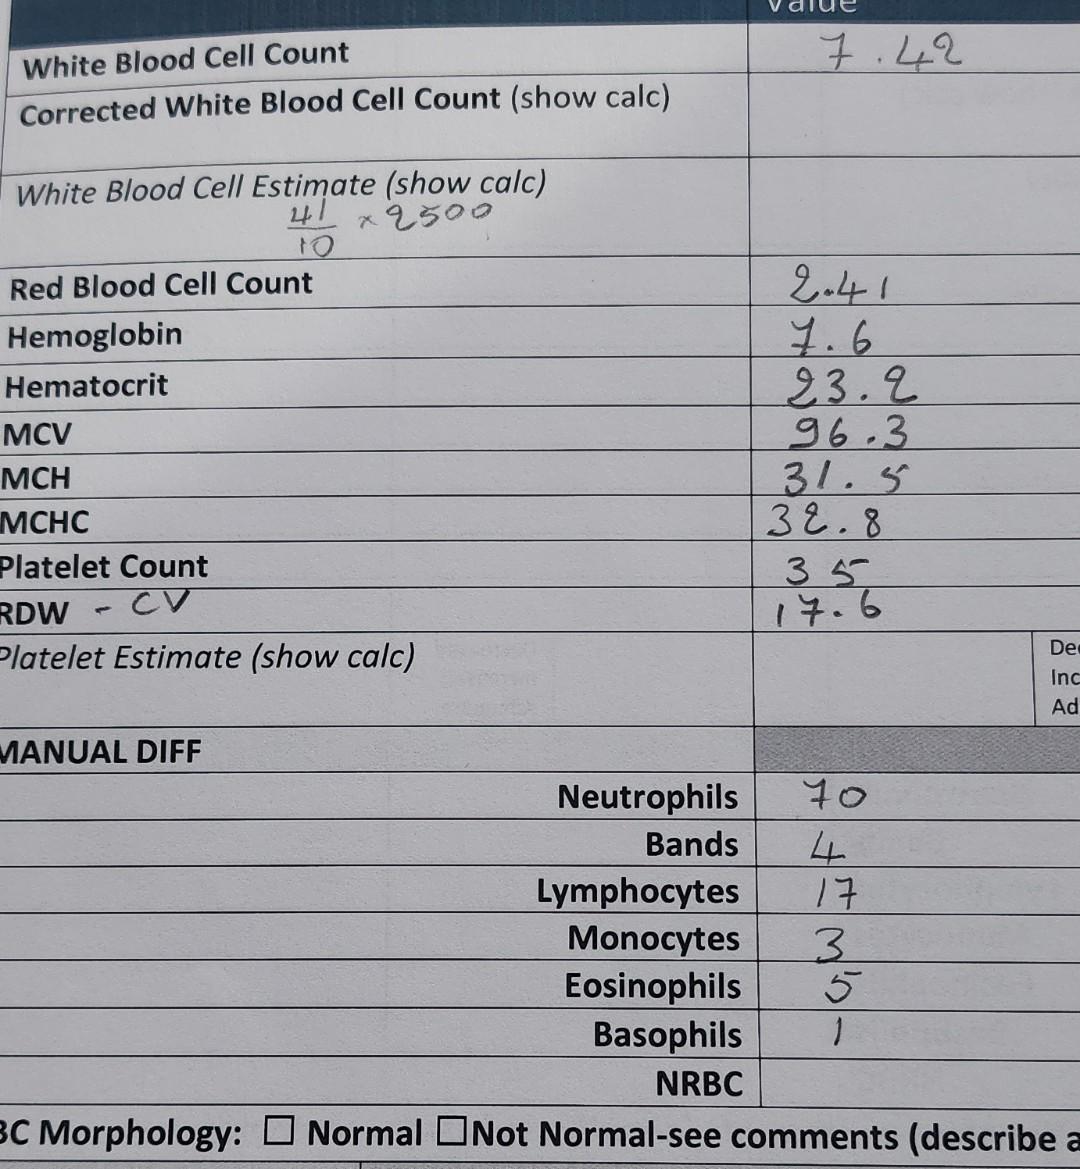 Value
White Blood Cell Count 7.42
Corrected White Blood Cell Count (show calc)
White Blood Cell Estimate (show calc)
41/10 × 2500
Red Blood Cell Count 2.41
Hemoglobin 7.6
Hematocrit 23.2
MCV 96.3
MCH 31.5
MCHC 32.8
Platelet Count 35
RDW - CV 17.6
Platelet Estimate (show calc)
Dec
Inc
Ad
MANUAL DIFF
Neutrophils 70
Bands 4
Lymphocytes 17
Monocytes 3
Eosinophils 5
Basophils 1
NRBC
BC Morphology: ☐ Normal ☐Not Normal-see comments (describe a